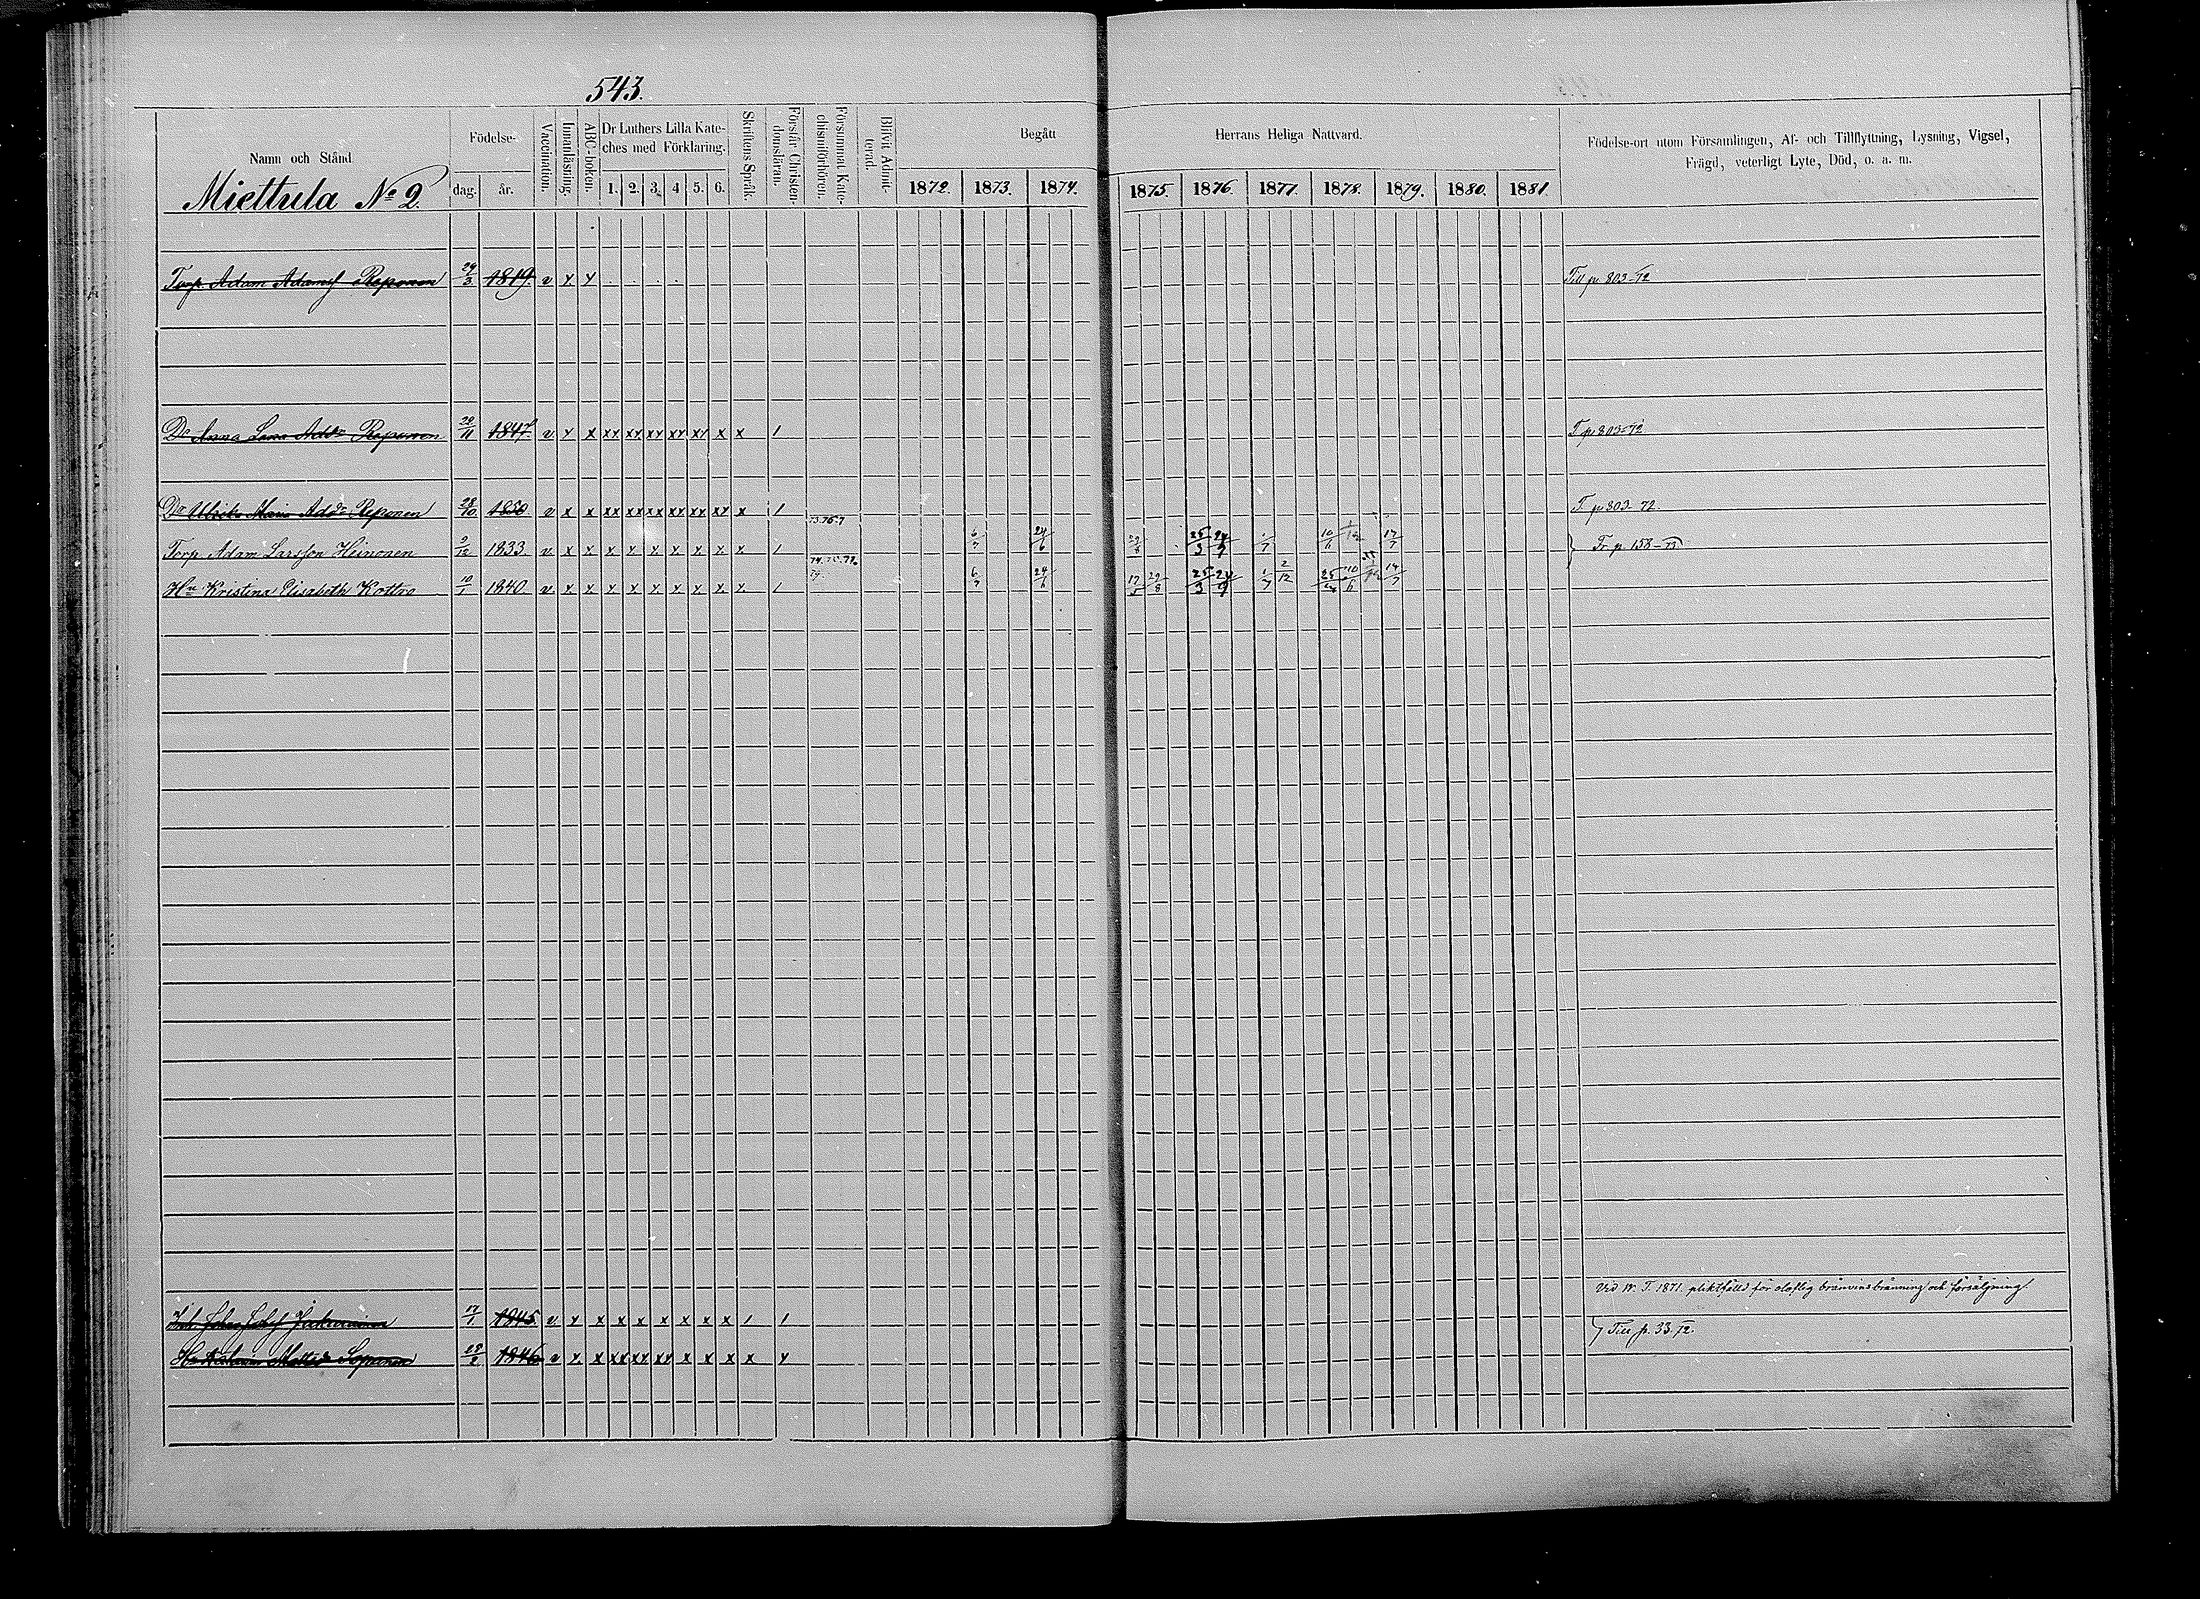 543.
Namn och Stånd.
Födelse-
dag. år.
Vaccination.
Innanläsning.
ABC-boken.
Dr Luthers Lilla Kate-
ches med Förklaring.
1. 2. 3. 4 5. 6.
Skriftens Språk.
Förstår Christen-
domsläran.
Försummat Kate-
chismiförhören.
Blifvit Admit-
terad.
Begått Herrans Heliga Nattvard.
1872. 1873. 1874. 1875. 1876. 1877. 1878. 1879. 1880. 1881.
Födelse-ort utom Församlingen, Af- och Tillflyttning, Lysning, Vigsel,
Frägd, veterligt Lyte, Död, o. a. m.
Miettula No 2.
Torp. Adam Adamsf Reponen 29/3 1819. v y y Till p 803-72
Dr Anna Lena Adsdr Reponen 20/11 1847 v y x xy xy xy xy xy x x 1 T p 803-72
Dr Ulrika Maria Adsdr Reponen 28/10 1850 v x x xx xx xx xy xy xy x 1 T p 803-72.
73.75.7
Torp. Adam Larsson Heinonen 9/12 1833. v x x x x x x x x x 1 6/7 24/6 29/8 25/3 24/9 1/7 10/11 17/7 } Tr. p. 158-
74.75.78.
79.
Hu Kristina Elisabeth Kottro 10/1 1840. v x x x x x x x x x 1 6/7 24/6 17/5 29/8 25/3 24/9 1/7 2/12 10/6 17/7
Vid W. T. 1871. pliktfälld för oloflig bränvinsbränning och försäljning.
17/1 1845 v y x x x x x x x 1 1 } Till p. 33.72.
Hu Matsdr Soponen 29/2 1846 v y x xx xy xy x x x x y